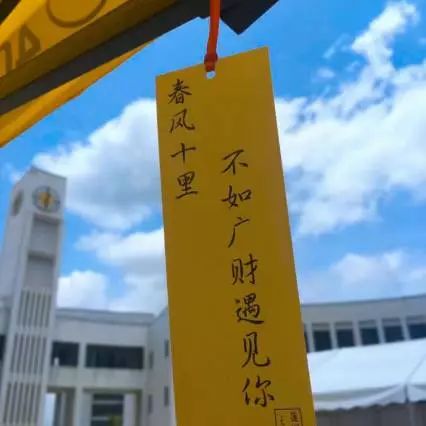 春风十里
不如广财遇见你